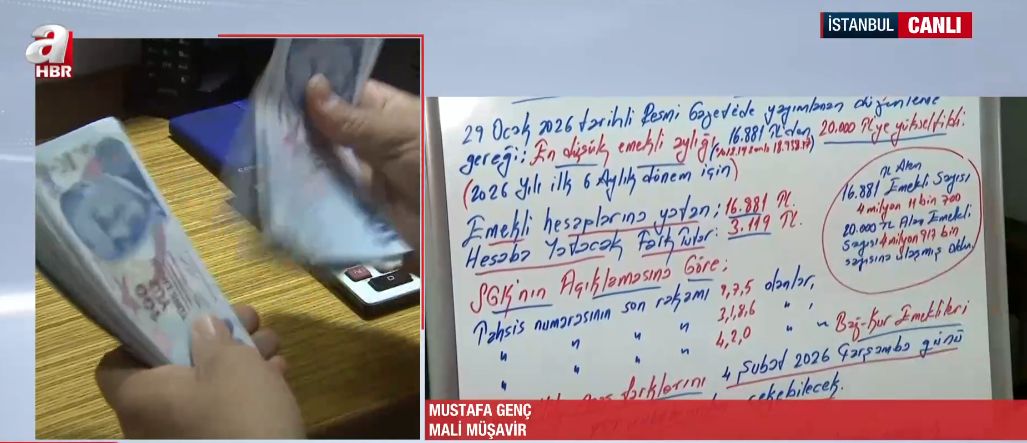 a
HBR
İSTANBUL CANLI
29 Ocak 2026 tarihli Resmi Gazetede yayımlanan düzenleme
gereği; En düşük emekli aylığı 16.881 TL'den 20.000 TL'ye yükseltildi.
(2026 Yılı ilk 6 Aylık dönem için)
Emekli hesaplarına yatan; 16.881 TL.
Hesaba Yatacak Fark Tutar: 3.119 TL.
SGK'nın Açıklamasına Göre;
Tahsis numarasının son rakamı 9,7,5 olanlar,
" " " " 3,1,8,6 " ,
" " " " 4,2,0 " " Bağ-Kur Emeklileri
farklarını 4 Şubat 2026 Çarşamba günü
çekebilecek.
TL Alan
16.881 Emekli Sayısı
4 milyon 11 bin 700
20.000 TL Alan Emekli
Sayısı 4 milyon 917 bin
sayısına ulaşmış oldu.
MUSTAFA GENÇ
MALİ MÜŞAVİR